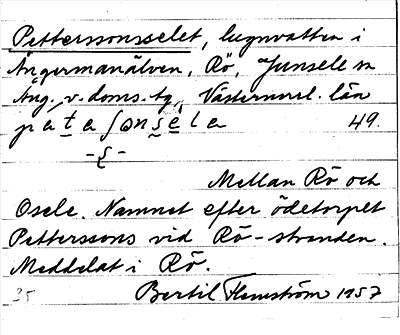 Petterssonsselet, lugnvatten i
Ångermanälven, Rö, Junsele sn
Ång. v. doms. tg, Västernorrl. län
49.
Mellan Rö och
Osele. Namnet efter ödetorpet
Petterssons vid Rö-stranden.
Meddelat i Rö.
35 Bertil Flemström 1957